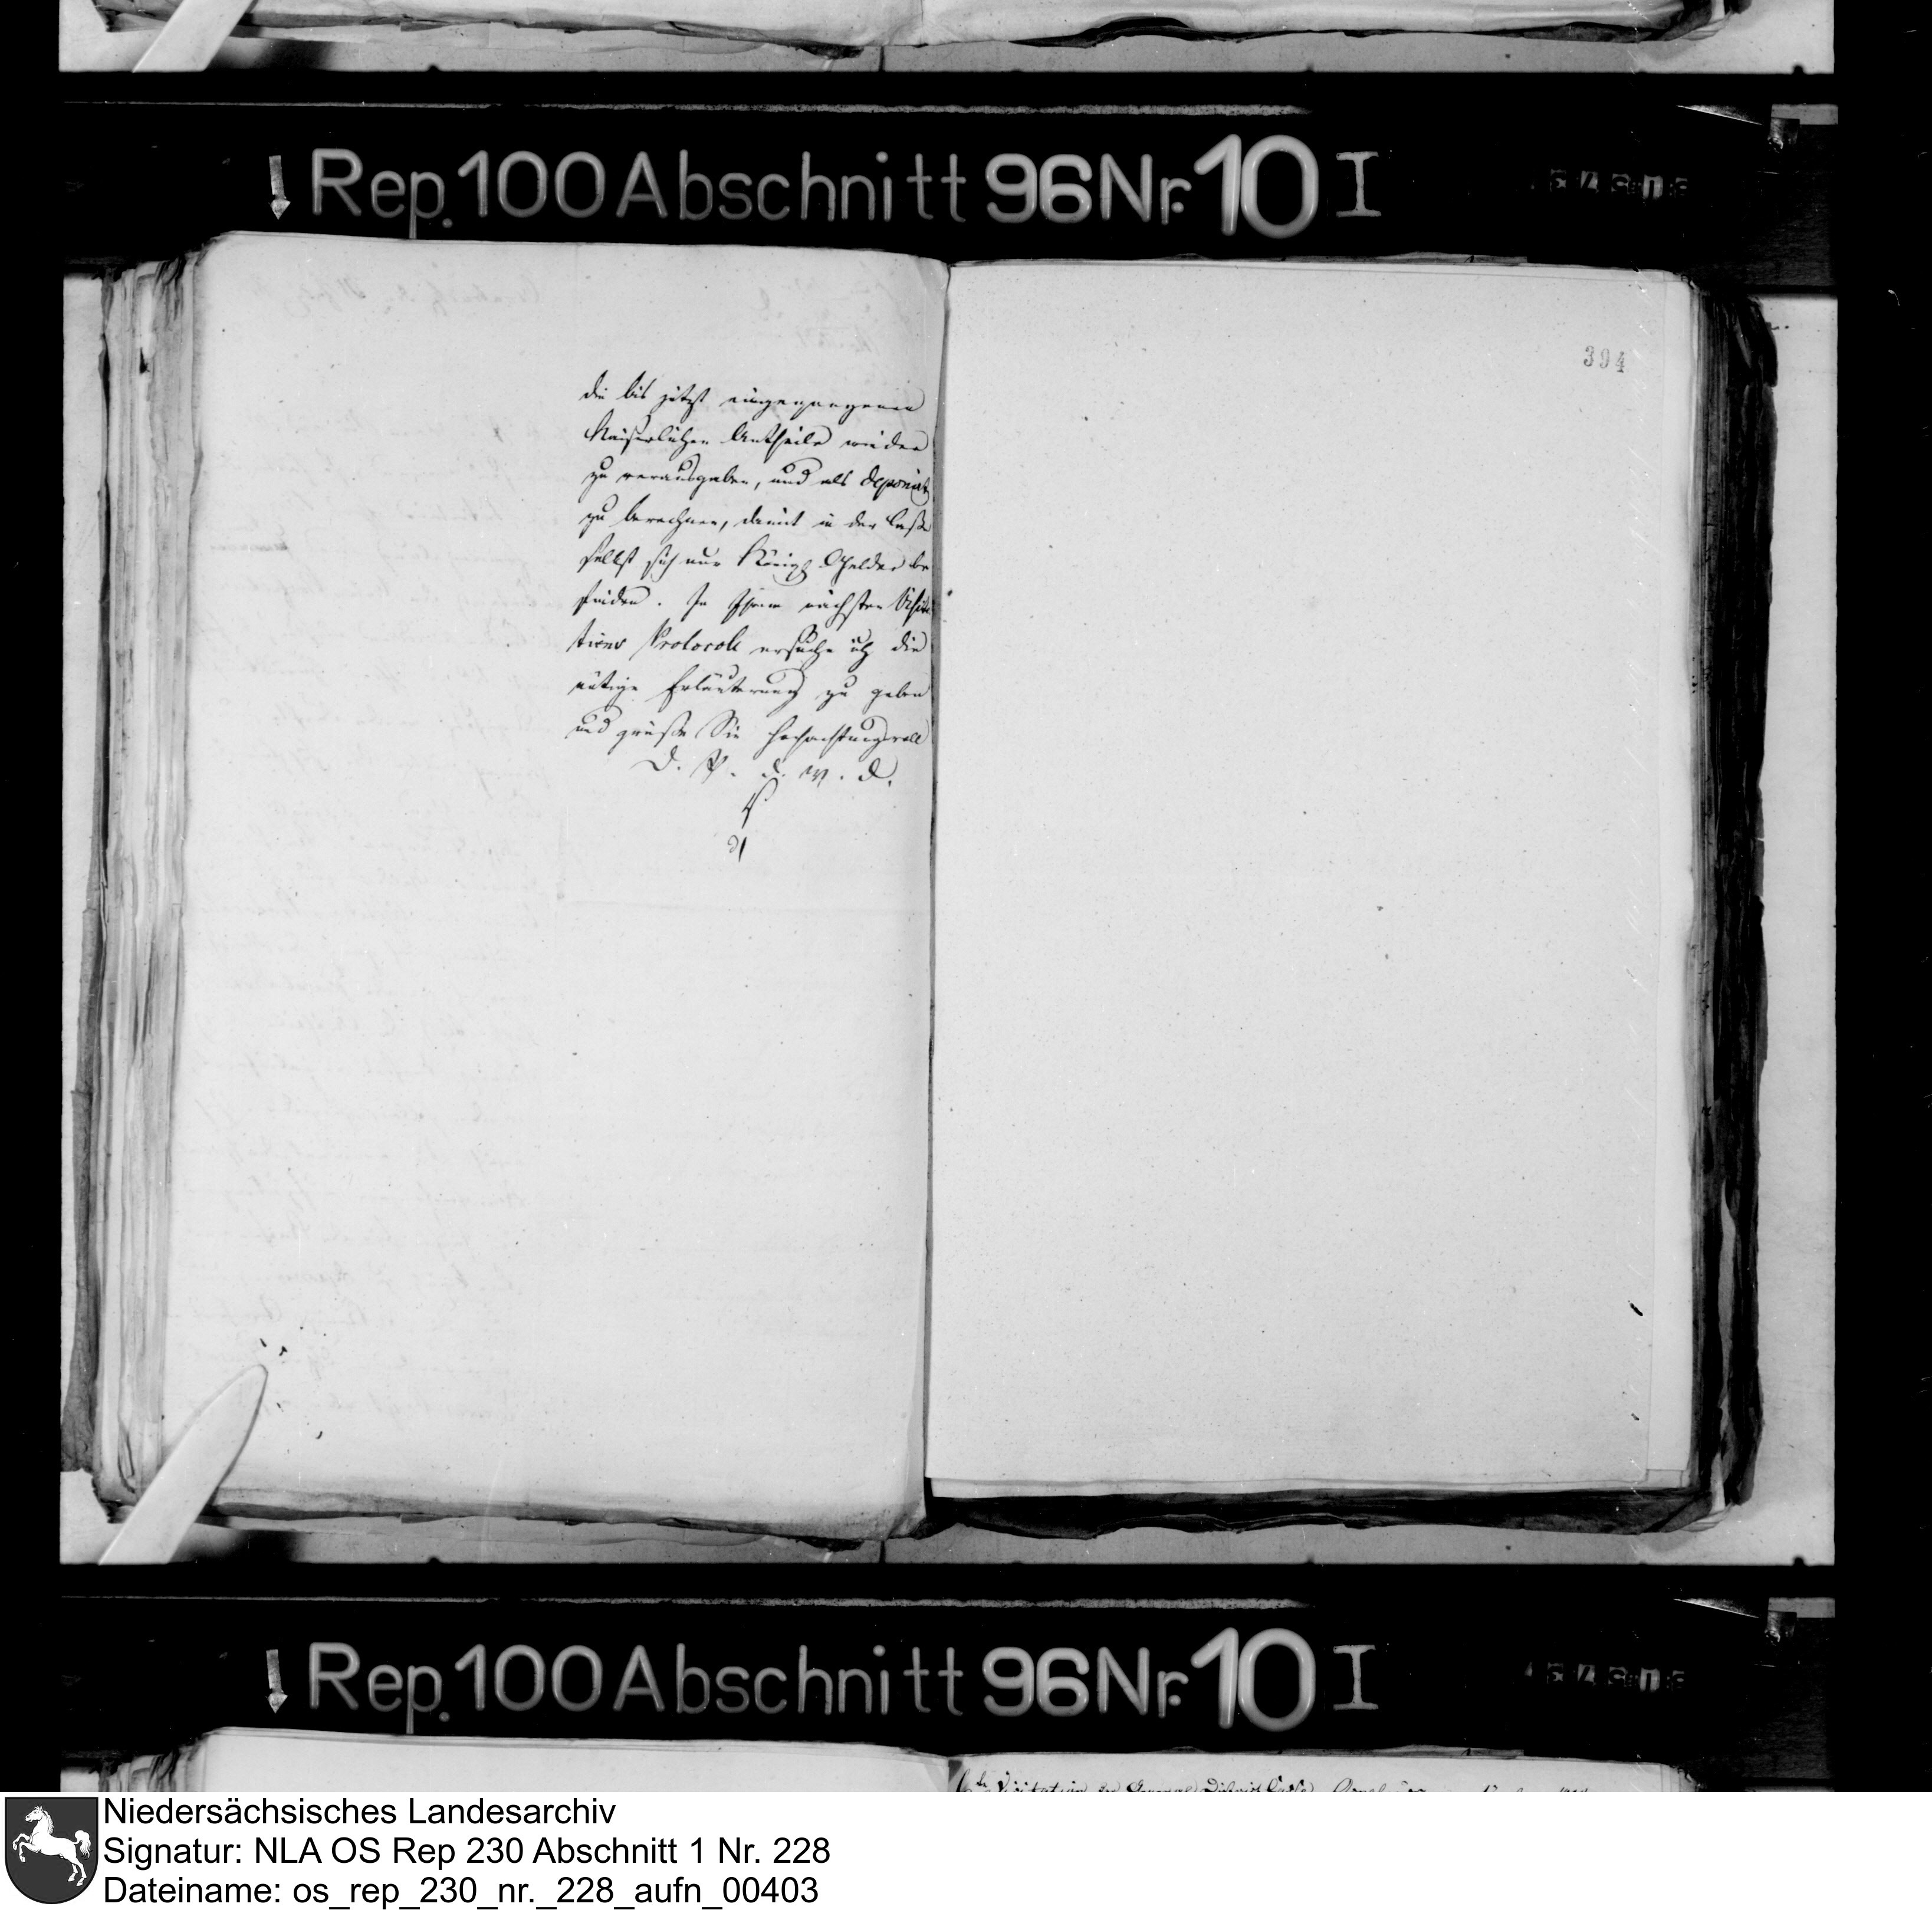 Rep. 100 Abschnitt 96 Nr. 10 I
394
die bis jetzt eingegangenen
Kaiserlichen Antheile wieder
zu verausgaben, und als deponirt
zu berechnen, damit in der Casse
selbst sich nur Königl. Gelder be
finden. In Ihrem nächsten Visita
tions Protocoll ersuche ich die
nötige Erläuterung zu geben
und grüße Sie hochachtungsvoll
D. P. d. W. D.
Rep. 100 Abschnitt 96 Nr. 10 I
Visitation der General District Casse
Niedersächsisches Landesarchiv
Signatur: NLA OS Rep 230 Abschnitt 1 Nr. 228
Dateiname: os_rep_230_nr._228_aufn_00403